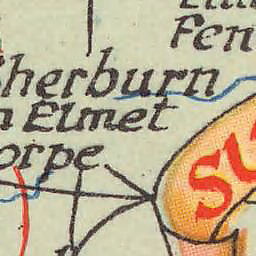 Fen
Sherburn
n Elmet
orpe
Su